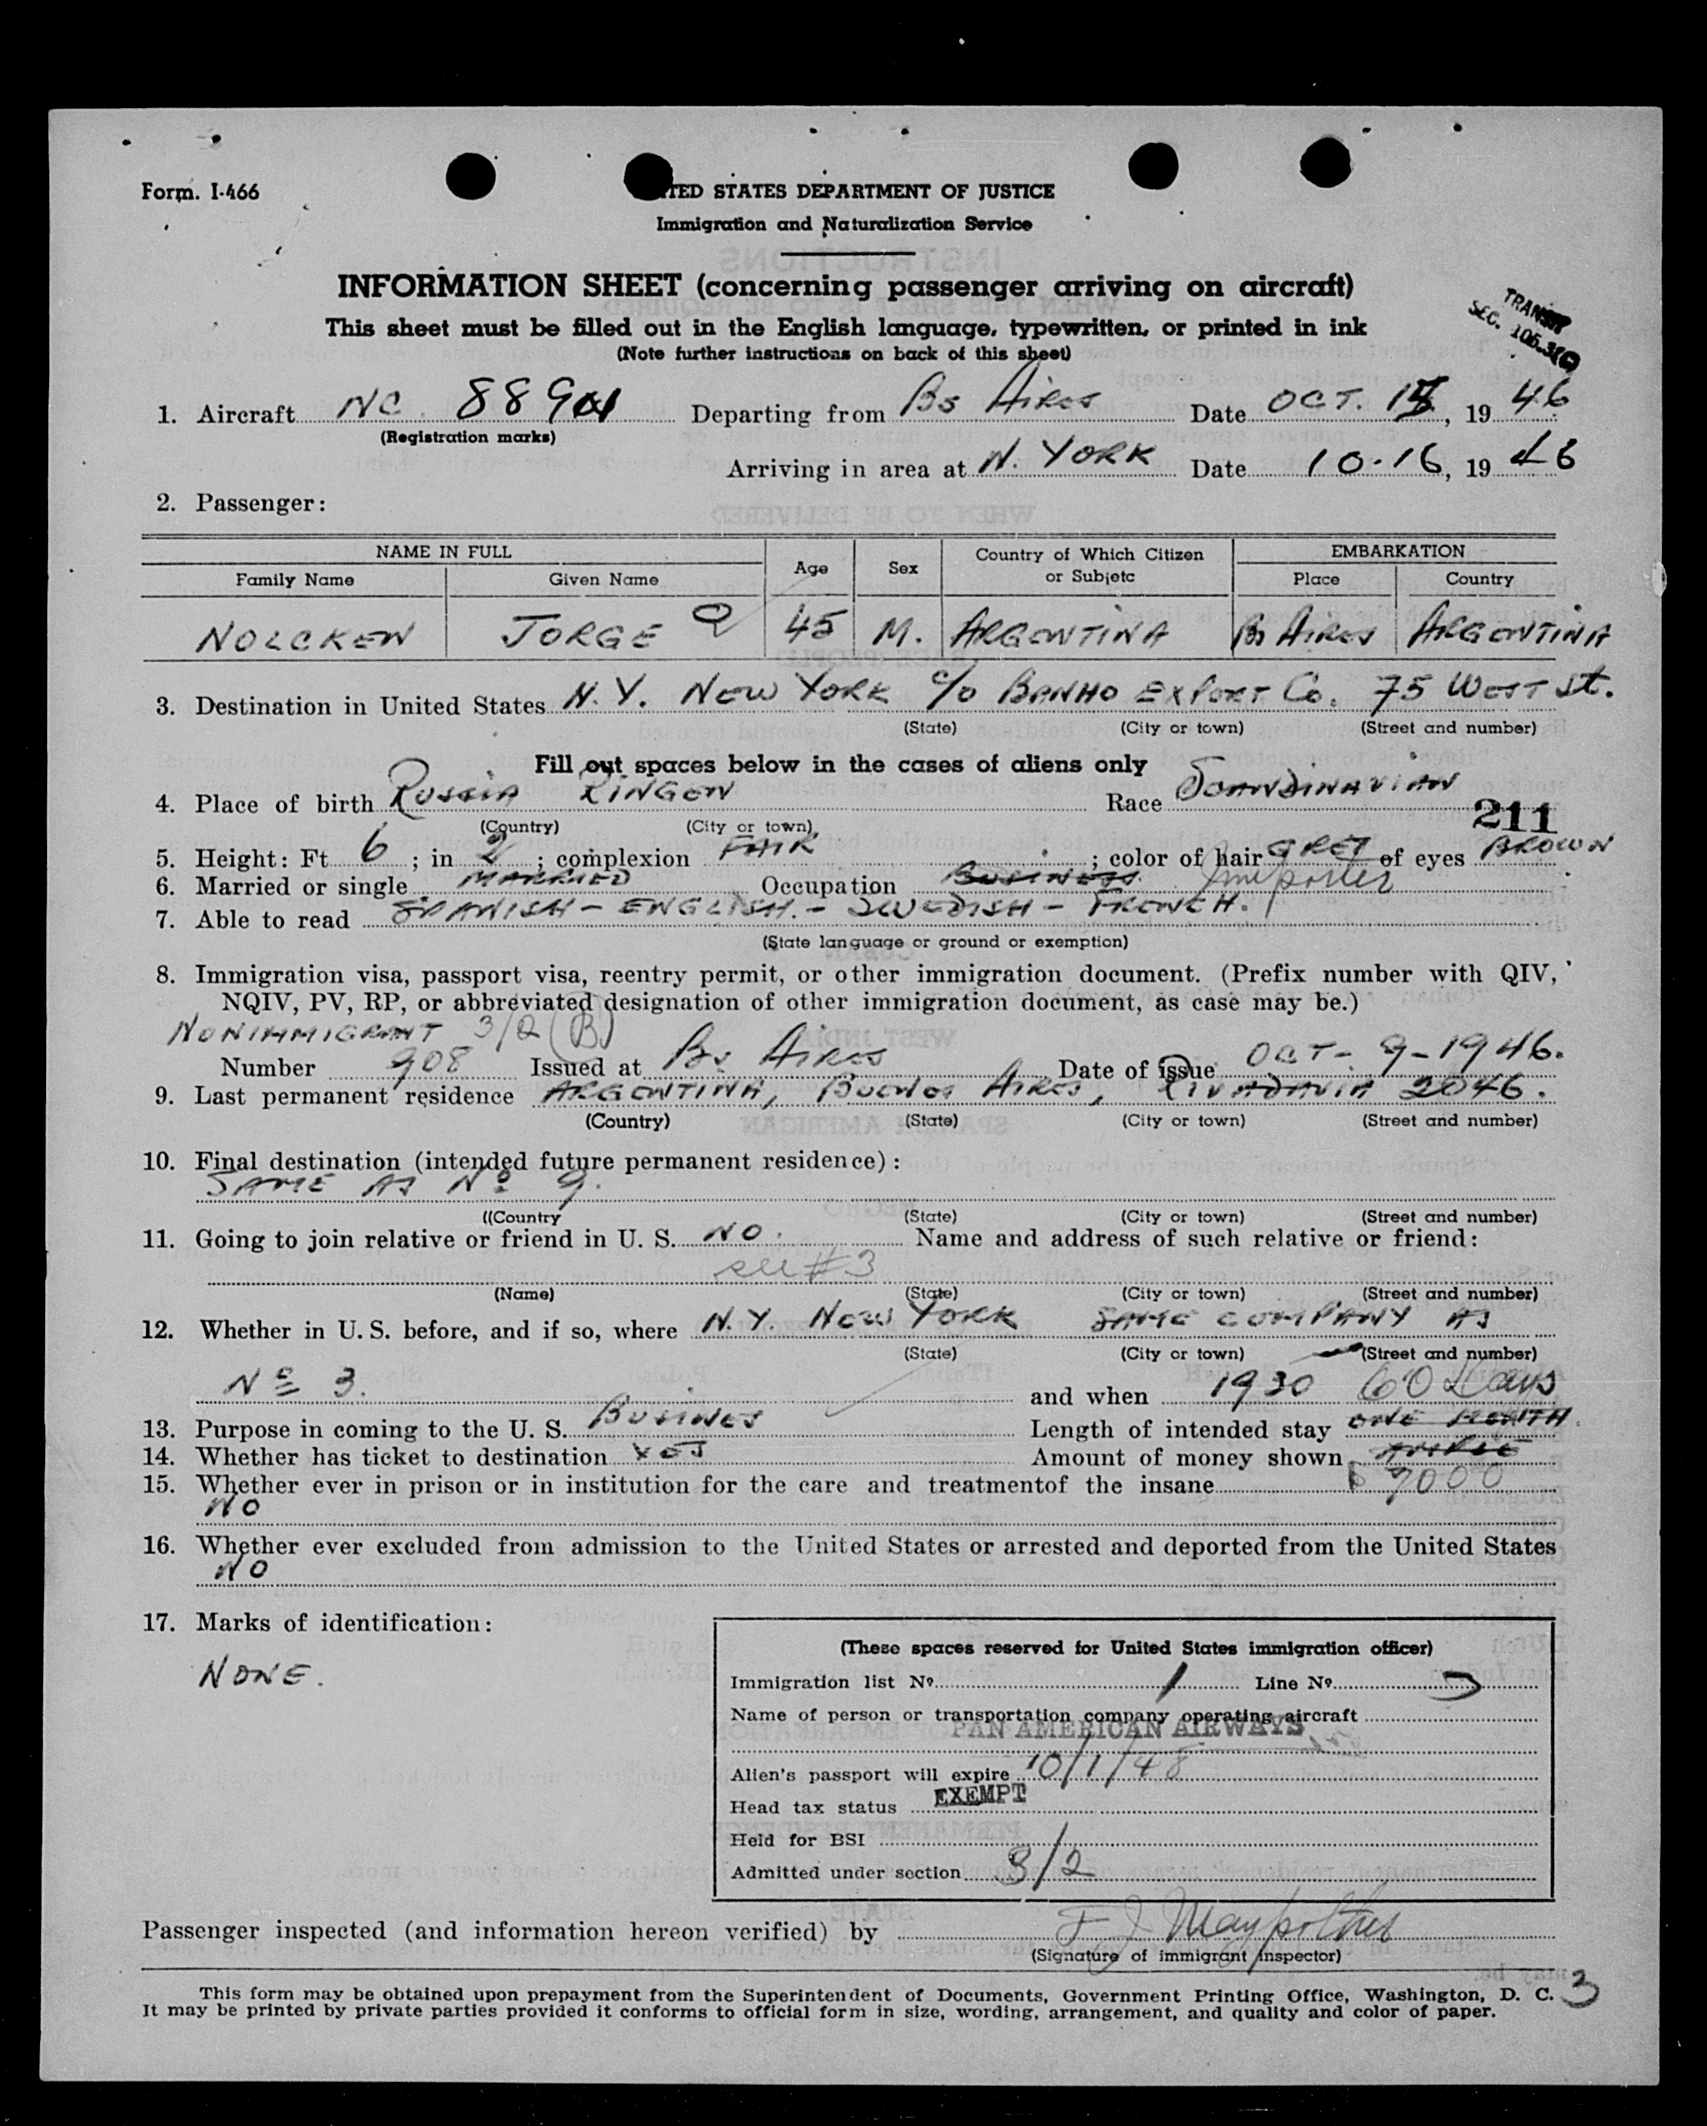 Form. I-466
TED STATES DEPARTMENT OF JUSTICE
Immigration and Naturalization Service
INFORMATION SHEET (concerning passenger arriving on aircraft)
This sheet must be filled out in the English language, typewritten, or printed in ink
(Note further instructions on back of this sheet)
TRANSIT
SEC. 106.3(C)
1. Aircraft NC 889 Departing from Bs AIRES Date OCT. , 19 46
(Registration marks)
Arriving in area at N. YORK Date 10-16, 19 46
2. Passenger:
NAME IN FULL Age Sex Country of Which Citizen or Subjetc EMBARKATION
Family Name Given Name Place Country
NOLCKEN JORGE 45 M. ARGENTINA Bs AIRES ARGENTINA
3. Destination in United States N.Y. NEW YORK c/o BANHO EXPORT Co. 75 WEST St.
(State) (City or town) (Street and number)
Fill out spaces below in the cases of aliens only
4. Place of birth RUSSIA RINGEN Race SCANDINAVIAN
(Country) (City or town)
211
5. Height: Ft 6 ; in 2 ; complexion FAIR ; color of hair GREY of eyes BROWN
6. Married or single MARRIED Occupation BUSINESS Importer
7. Able to read SPANISH - ENGLISH - SWEDISH - FRENCH.
(State language or ground or exemption)
8. Immigration visa, passport visa, reentry permit, or other immigration document. (Prefix number with QIV,
NQIV, PV, RP, or abbreviated designation of other immigration document, as case may be.)
NONIMMIGRANT 3/2 (B)
Number 908 Issued at Bs AIRES Date of issue OCT - 9 - 1946.
9. Last permanent residence ARGENTINA, BUENOS AIRES, RIVADAVIA 2046.
(Country) (State) (City or town) (Street and number)
10. Final destination (intended future permanent residence):
SAME AS Nº 9.
((Country (State) (City or town) (Street and number)
11. Going to join relative or friend in U. S. NO. Name and address of such relative or friend:
see #3
(Name) (State) (City or town) (Street and number)
12. Whether in U. S. before, and if so, where N.Y. NEW YORK SAME COMPANY AS
(State) (City or town) (Street and number)
Nº 3. and when 1930 60 Days
13. Purpose in coming to the U. S. BUSINES Length of intended stay ONE MONTH.
14. Whether has ticket to destination YES Amount of money shown
15. Whether ever in prison or in institution for the care and treatmentof the insane $ 9000
NO
16. Whether ever excluded from admission to the United States or arrested and deported from the United States
NO
17. Marks of identification:
NONE.
(These spaces reserved for United States immigration officer)
Immigration list Nº 1 Line Nº
Name of person or transportation company operating aircraft
PAN AMERICAN AIRWAYS
Alien's passport will expire 10/1/48
Head tax status EXEMPT
Held for BSI
Admitted under section 3/2
Passenger inspected (and information hereon verified) by F J Maypother
(Signature of immigrant inspector)
This form may be obtained upon prepayment from the Superintendent of Documents, Government Printing Office, Washington, D. C. 3
It may be printed by private parties provided it conforms to official form in size, wording, arrangement, and quality and color of paper.